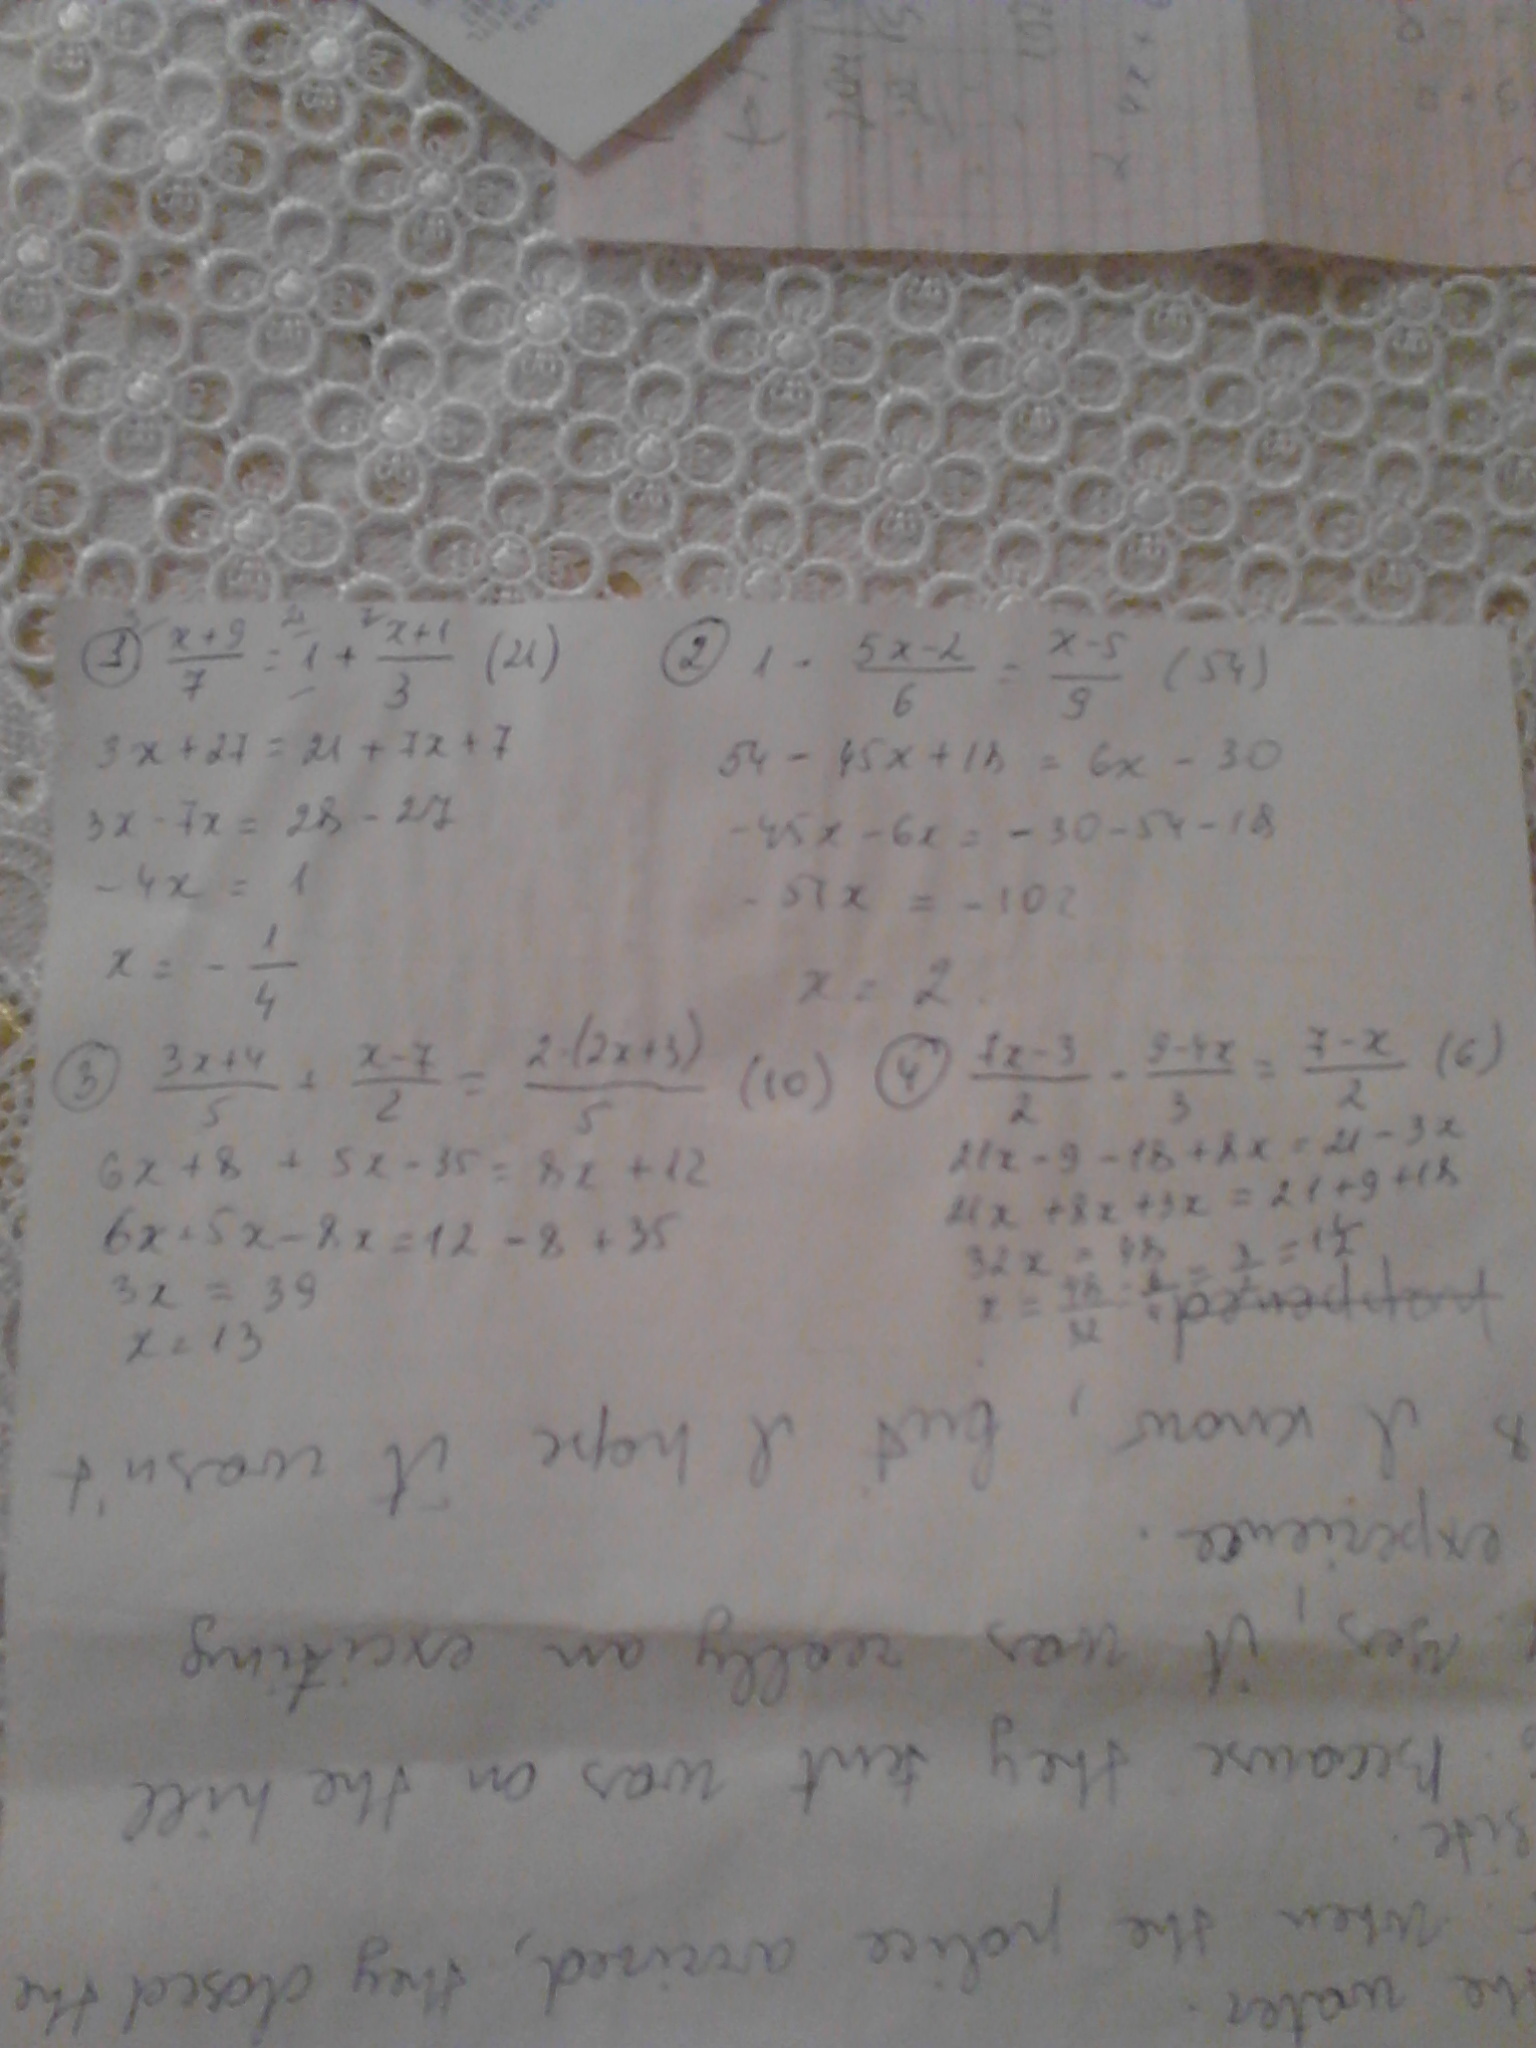 ① (x+9)/7 = 1 + (x+1)/3 (21)
3x+27 = 21+7x+7
3x-7x = 28-27
-4x = 1
x = -1/4
② 1 - (5x-2)/6 = (x-5)/9 (54)
54 - 45x + 18 = 6x - 30
-45x - 6x = -30-54-18
-51x = -102
x = 2
③ (3x+4)/5 + (x-7)/2 = 2·(2x+3)/5 (10)
6x+8 + 5x-35 = 8x+12
6x+5x-8x = 12-8+35
3x = 39
x = 13
④ (7x-3)/2 - (9-4x)/3 = (7-x)/2 (6)
21x-9-18+8x = 21-3x
21x+8x+3x = 21+9+18
32x = 48
x = 48/32 = = 3/2 = 1 1/2
the water.
When the police arrived, they closed the
site.
Because they tent was on the hill
Yes, it was really an exciting
experience.
I know, but I hope it wasn't
happened